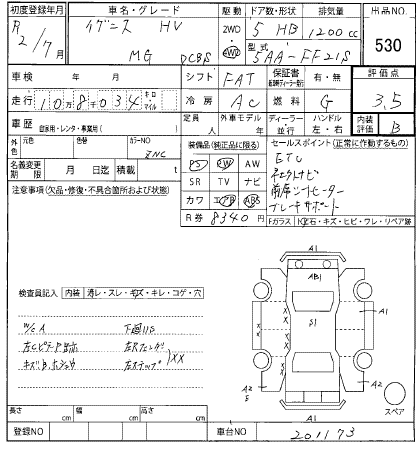 初度登録年月 車名・グレード 駆動 ドア数・形状 排気量 出品NO.
R2/7月 イグニス HV 2WD 4WD 5 HB 1200cc 530
MG DCBS 型式 5AA-FF21S
車検 年 月 シフト FAT 保証書 有・無 評価点
走行 10万8千034 キロ マイル 冷房 AC 燃料 G 3.5
車歴 自家用・レンタ・事業用( ) 定員 人 外車モデル 年 ディーラー 並行 ハンドル 左・右 内装評価 B
外色 元色 色替 カラーNO ZNC 装備品(純正品に限る) セールスポイント(正常に作動するもの)
PS PW AW ETC
名義変更期限 月 日迄 積載 t SR TV ナビ
注意事項(欠品・修復・不具合箇所および状態) カワ エアB ABS 前席シートヒーター
R券 8340円 ブレーキサポート
Fガラス キズ・ヒビ・ワレ・リペア跡
A1
検査員記入 内装 汚レ・スレ・キズ・キレ・コゲ・穴 AB1
S1 A1
W/C A 下廻りS
左Cピラー
キズB 左Rステップ XX
A2 S A2
A1 スペア
長さ cm 幅 cm 高さ cm
登録NO 車台NO 201173